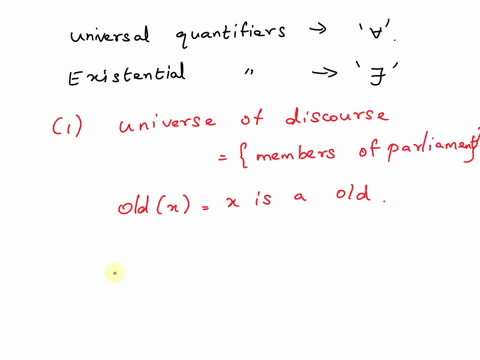 universal quantifiers → '∀'.
Existential " → '∃'
(1) universe of discourse
= { members of parliament}
old(x) = x is a old.